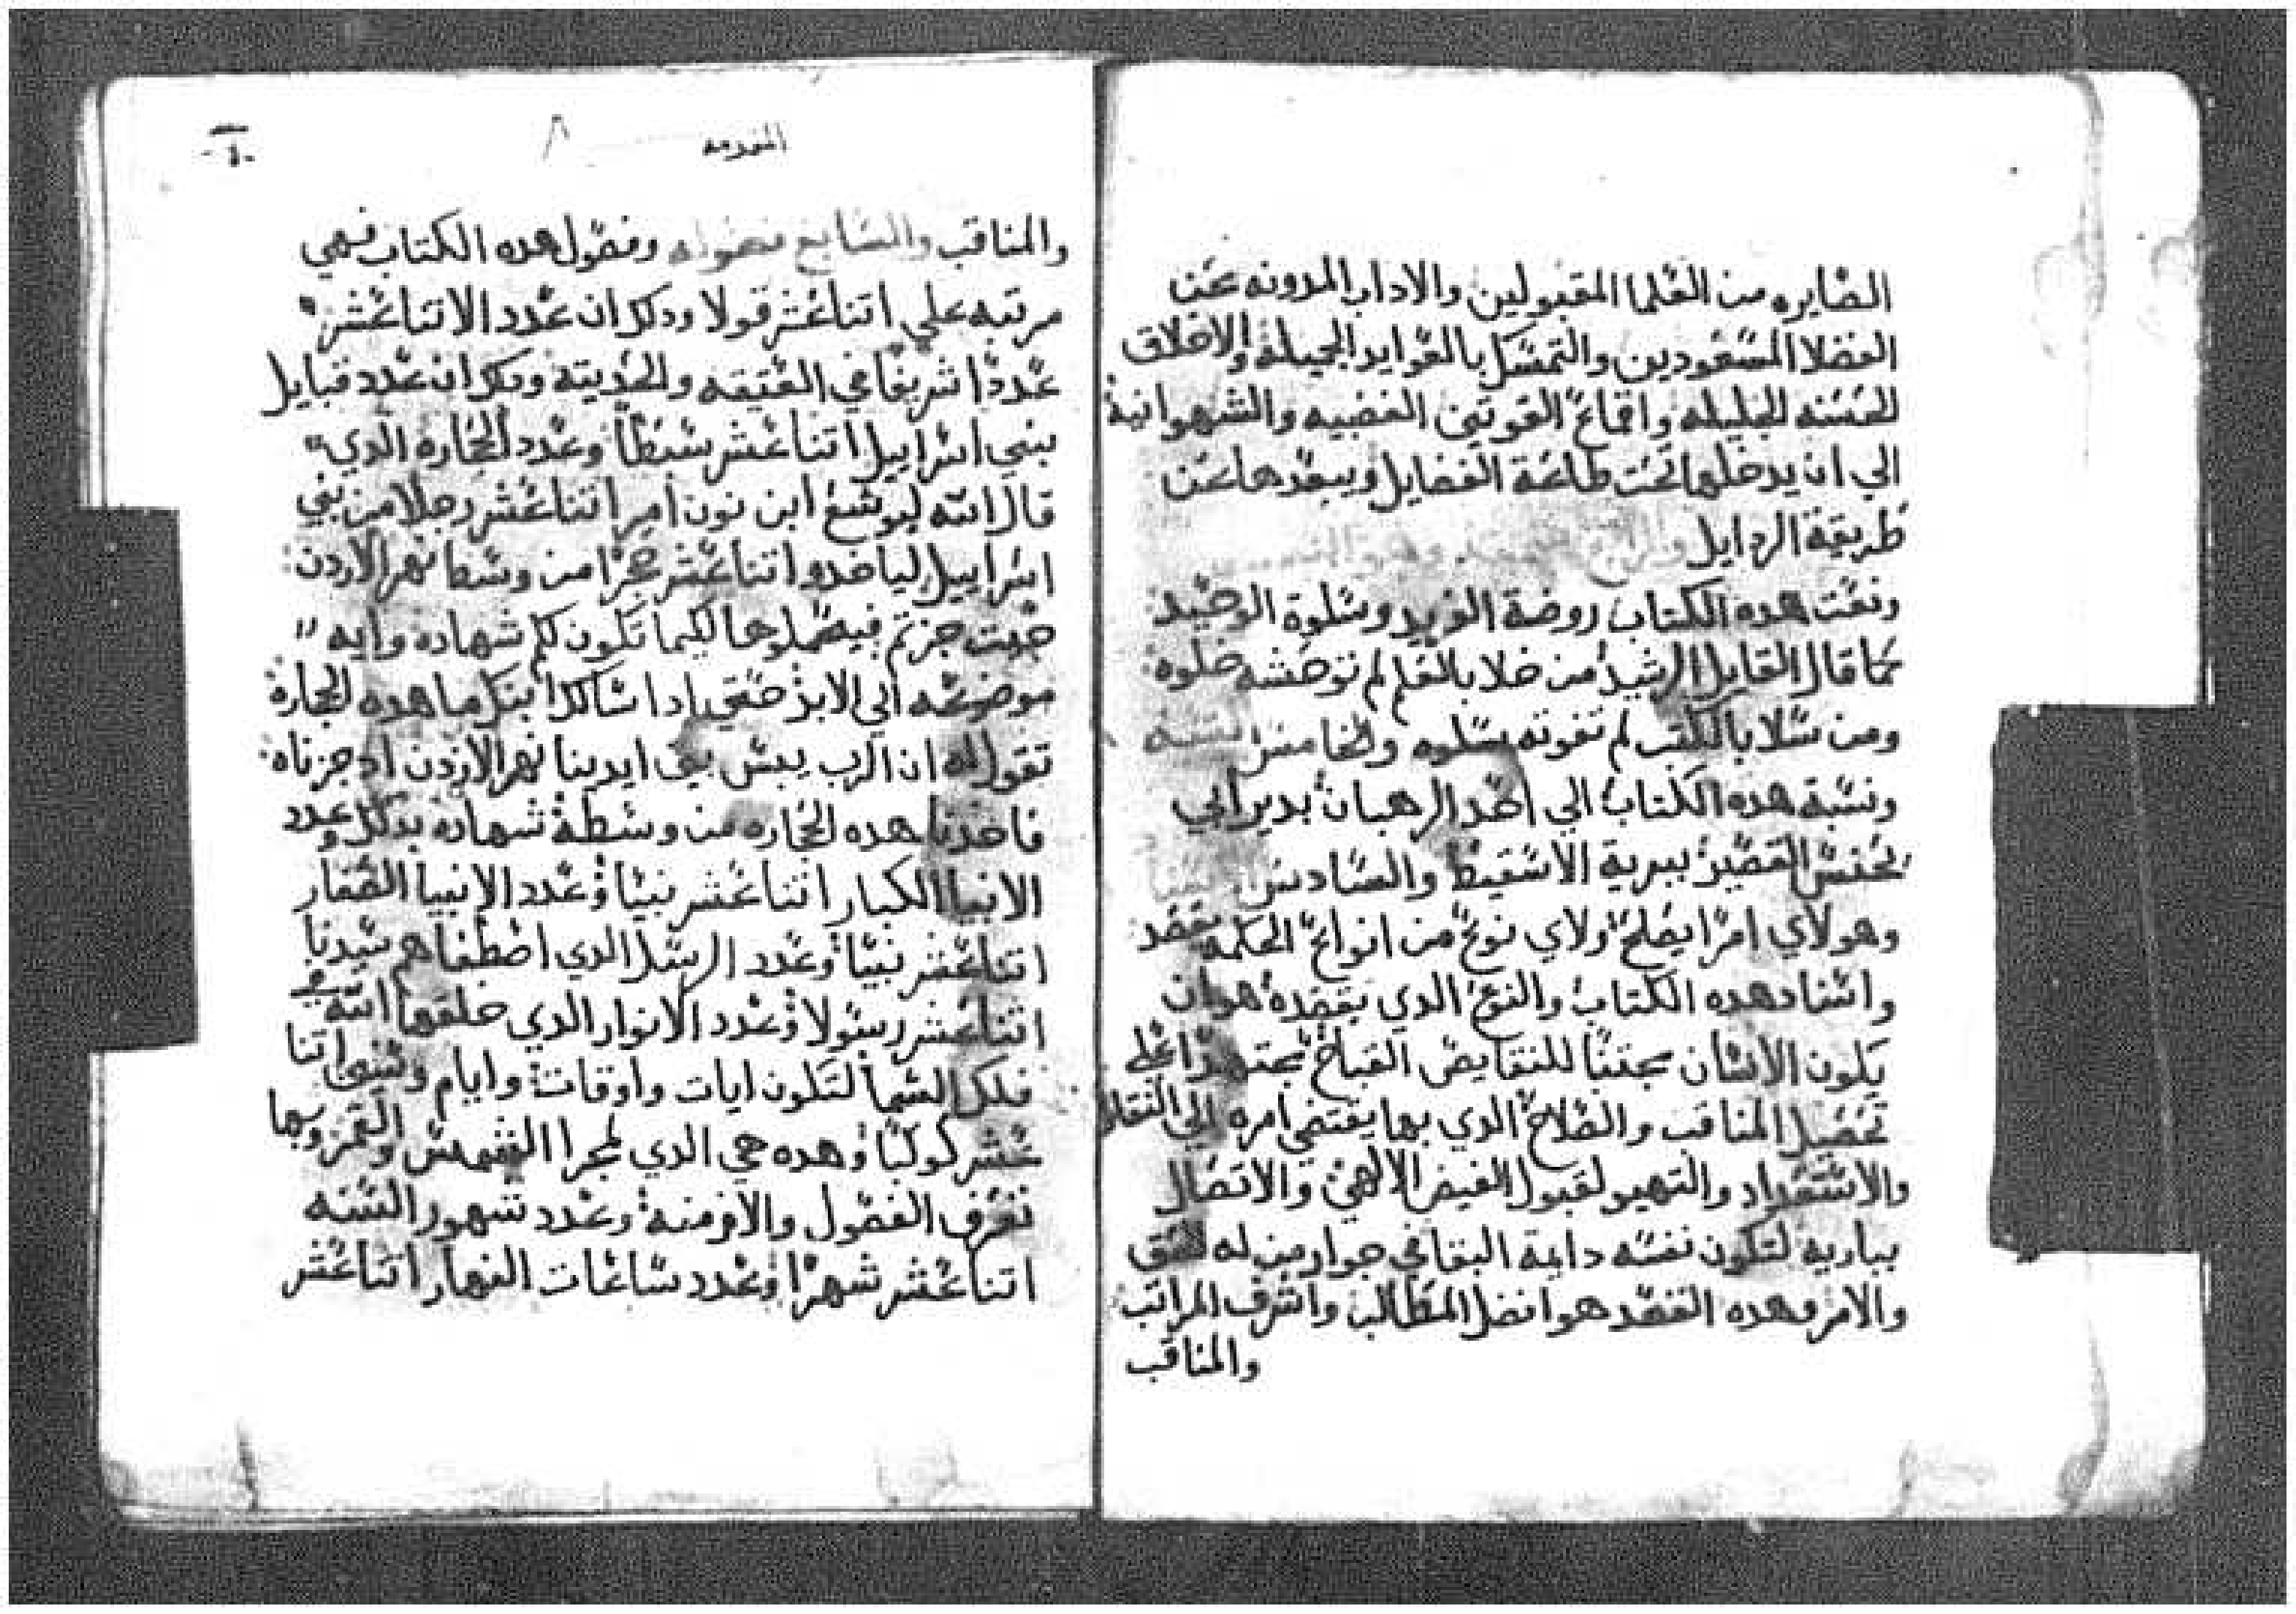 الصايره من العلما المقبولين والاداب المدونه عن
الفضلا المسعودين والتمسك بالعوايد الجميلة والاخلاق
الحسنه الجليله واقماع القوتين الغضبيه والشهوانية
الي ان يدخلها تحت طاعة الفضايل ويبعدها عن
طريقة الردايل والرابع
ونعت هده الكتاب روضة الفريد وسلوة الوحيد
كما قال القايل الرشيد من خلا بالعلم لم توحشه خلوه
ومن سلا بالكتب لم تفوته سلوه والخامس نسبته
ونسبة هده الكتاب الي احد الرهبان بدير ابي
يحنس القصير ببرية الاسقيط والسادس
وهو لاي امرا يصلح ولاي نوع من انواع الحكمه قصد
واسناد هده الكتاب والنوع الدي يقصده هو ان
يكون الانسان مجتنبا للنقايص القباح مجتهدا على
تحصيل المناقب والصلاح الدي بها يفتضي امره الي النقله
والاستعداد والتهيو لقبول الفيض الالاهي والاتصال
بباريه لتكون نفسه دايمة البقا في جوار من له الخلق
والامر وهده القصد هو افضل المطالب واشرف المراتب
والمناقب
المقدمه
والمناقب والسابع فصوله وفصول هده الكتاب فهي
مرتبه علي اتناعشر قولا ودلك ان عدد الاتناعشر
عددا شريفا في العتيقه والحديته ودلك ان عدد قبايل
بني اسراييل اتناعشر سبطا وعدد الحجاره الدي
قال الله ليوشع ابن نون امر اتناعشر رجلا من بني
اسراييل لياخدوا اتناعشر حجرا من وسط نهر الاردن
حيت جزتم فيه لكيما تكون لكم شهاده وايه
موضوعه الي الابد حتي ادا سالك ابنك ما هده الحجارة
تقول له ان الرب يبس بين ايدينا نهر الاردن اد جزناه
فاخدنا هده الحجاره من وسطة شهاده بدلك وعدد
الانبيا الكبار اتناعشر نبيا وعدد الانبيا الصغار
اتناعشر نبيا وعدد الرسل الدي اصطفاهم سيدنا
اتناعشر رسولا وعدد الانوار الدي خلقها الله في
فلك السما لتكون ايات واوقات وايام وسنين اتنا
عشر كوكبا وهده هي الدي لمجرا الشمس والقمر وبها
تعرف الفصول والازمنه وعدد شهور السنه
اتناعشر شهرا وعدد ساعات النهار اتناعشر